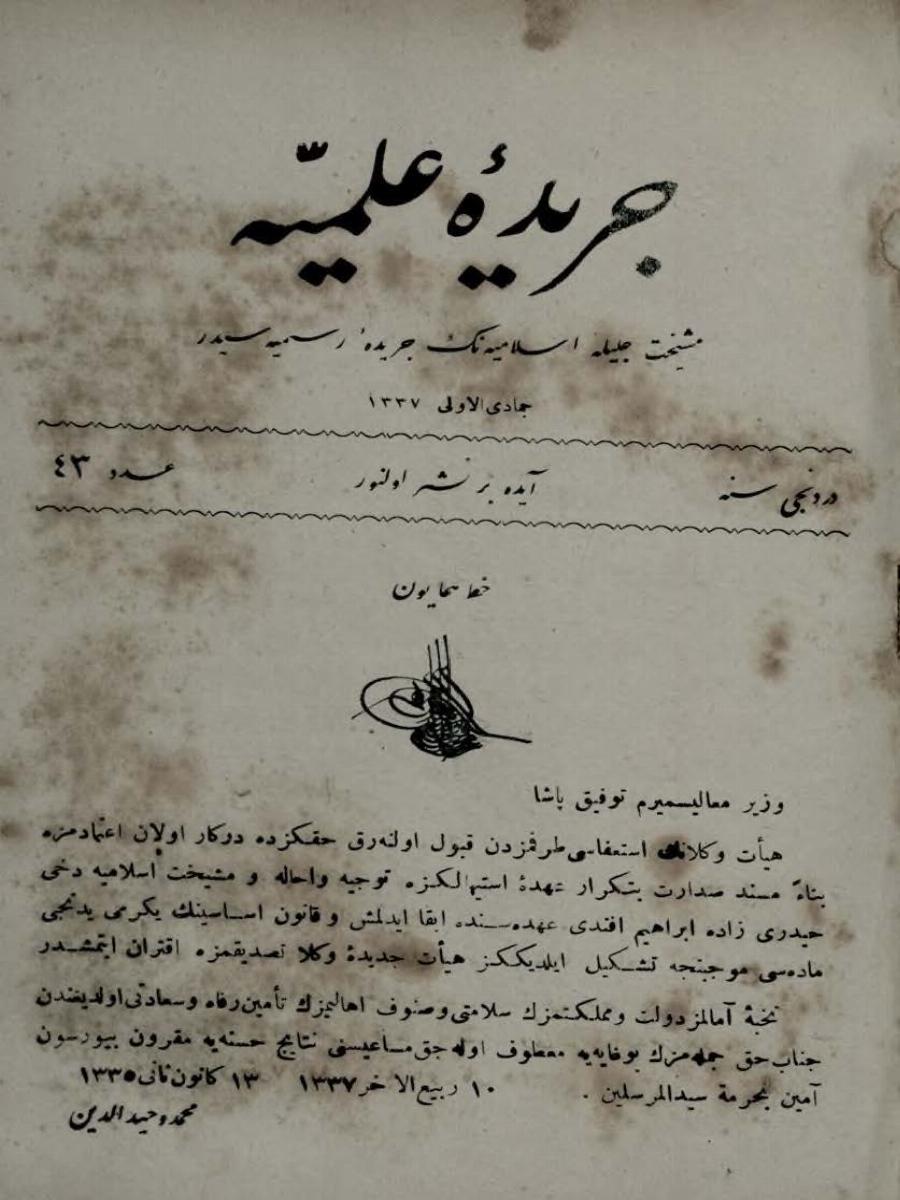 جريدۀ علميّه
مشيخت جليلۀ اسلاميه‌نك جريدۀ رسميه سيدر
جمادى‌الاولى ١٣٣٧
دردنجى سنه
آيده بر نشر اولنور
عدد ٤٣
خط همايون
وزير معاليسميرم توفيق پاشا
هيأت وكلانك استعفاسى طرفمزدن قبول اولنه‌رق حقكزده دركار اولان اعتمادمزه
بناءً مسند صدارت بتكرار عهدۀ استيهالكزه توجيه واحاله و مشيخت اسلاميه دخى
حيدرى زاده ابراهيم افندى عهده‌سنده ابقا ايدلمش و قانون اساسينك يكرمى يدنجى
ماده‌سى موجبنجه تشكيل ايلديككز هيأت جديدۀ وكلا تصديقمزه اقتران ايتمشدر
نخبۀ آمالمز دولت ومملكتمزك سلامتى وصنوف اهاليمزك تأمين رفاه وسعادتى اولديغندن
جناب حق جمله‌مزك بوغايه‌يه معطوف اوله‌جق مساعيسنى نتايج حسنه‌يه مقرون بيورسون
آمين بحرمة سيدالمرسلين . ١٠ ربيع‌الاخر ١٣٣٧ ١٣ كانون‌ثانى ١٣٣٥
محمد وحيدالدين